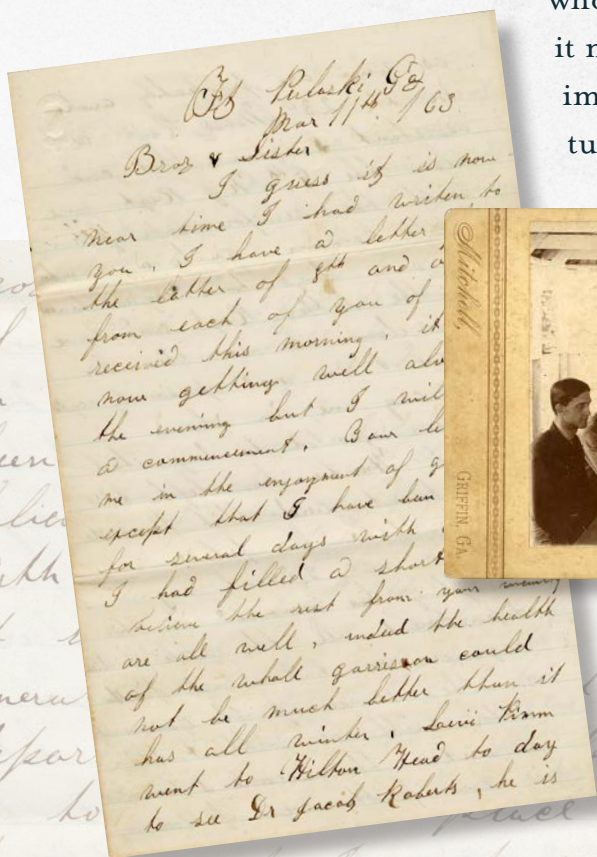 who
it n
im
tu
Ft Pulaski Ga
Mar 11th /63
Bro & Sister
I guess it is now
near time I had writen to
you, I have a letter
the latter of 5th and a
from each of you of
received this morning, it
now getting well alo
the evening but I wil
a commencement, Your le
me in the enjoyment of g
except that I have ben
for several days with
I had filled a short
believe the rest from your
are all well, indeed the health
of the whole garrison could
not be much better than it
has all winter,
went to Hilton Head to day
to see Dr Jacob Roberts, he is
Mitchell,
GRIFFIN, GA.
een
lie
ith
nera
par
to
place